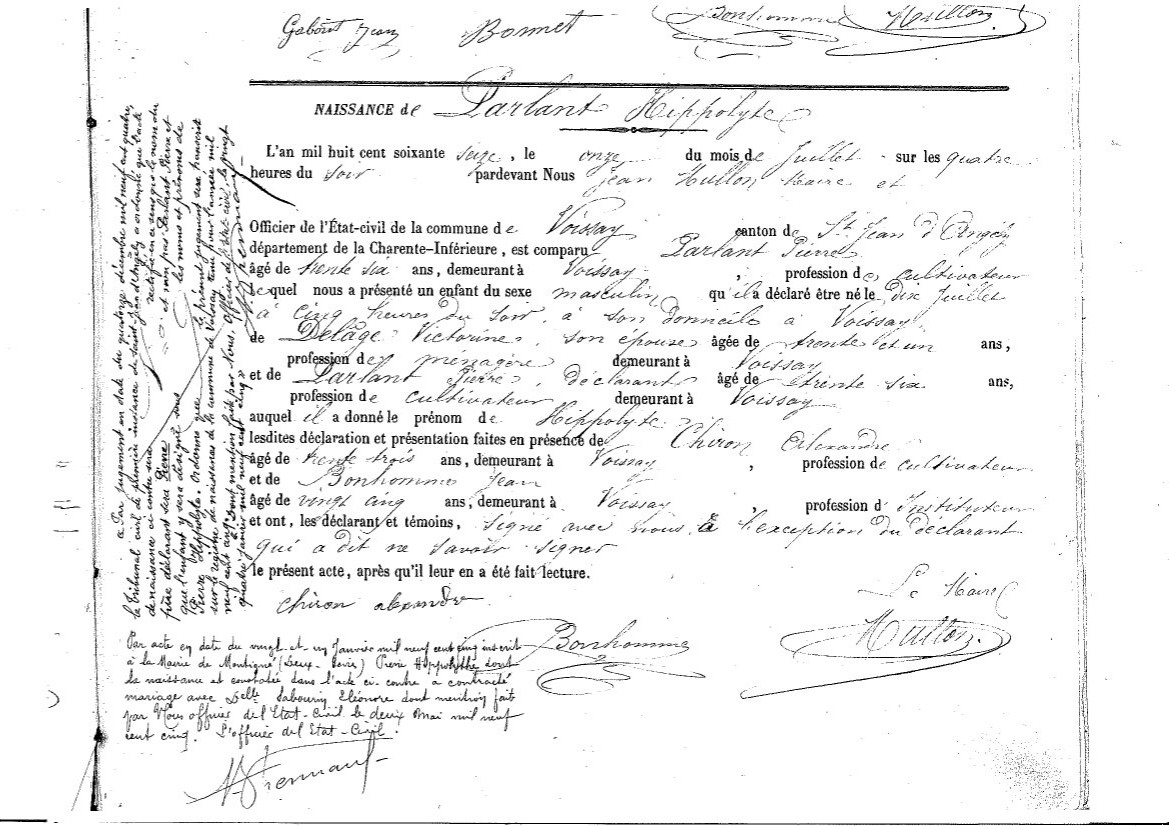 Gaboret Jean Bonnet Bonhomme Hullon
NAISSANCE de Parlant Hippolyte
L'an mil huit cent soixante seize, le onze du mois de Juillet sur les quatre
heures du soir pardevant Nous Jean Hullon Maire et
Officier de l'État-civil de la commune de Voissay canton de St Jean d'Angely
département de la Charente-Inférieure, est comparu Parlant Pierre
âgé de trente six ans, demeurant à Voissay, profession de cultivateur
Lequel nous a présenté un enfant du sexe masculin qu'il a déclaré être né le dix Juillet
à cinq heures du soir, à son domicile à Voissay
de Delâge Victorine, son épouse âgée de trente et un ans,
profession de ménagère demeurant à Voissay
et de Parlant Pierre, déclarant âgé de trente six ans,
profession de cultivateur demeurant à Voissay
auquel il a donné le prénom de Hippolyte
lesdites déclaration et présentation faites en présence de Chiron Alexandre
âgé de trente trois ans, demeurant à Voissay, profession de cultivateur
et de Bonhomme Jean
âgé de vingt cinq ans, demeurant à Voissay profession d'Instituteur
et ont, les déclarant et témoins, signé avec nous à l'exception du déclarant
qui a dit ne savoir signer
le présent acte, après qu'il leur en a été fait lecture.
chiron alexandre
Le Maire
Bonhomme
Hullon
Par jugement en date du quatorze décembre mil neuf cent quatre,
le Tribunal civil de première instance de Saint Jean d'Angély a ordonné que l'acte
de naissance ci contre sera rectifié en ce sens que le nom du
père déclarant sera Pierre et non pas Parlant Pierre et
que l'enfant y sera désigné sous les noms et prénoms de
Pierre Hippolyte. Ordonne que le présent jugement sera transcrit
sur le registre de naissances de la commune de Voissay tenu pour l'année mil
neuf cent Dont mention faite par Nous, Officier de l'état-civil, le vingt
quatre janvier mil neuf cent cinq
Par acte en date du vingt-et-un Janvier mil neuf cent cinq inscrit
à la Mairie de Montigné (Deux-Sèvres) Pierre Hippolythe dont
la naissance est constatée dans l'acte ci-contre a contracté
mariage avec Delle Sabourin Eléonore dont mention fait
par Nous officier de l'Etat-Civil le deux Mai mil neuf
cent cinq. L'officier de l'Etat-Civil.